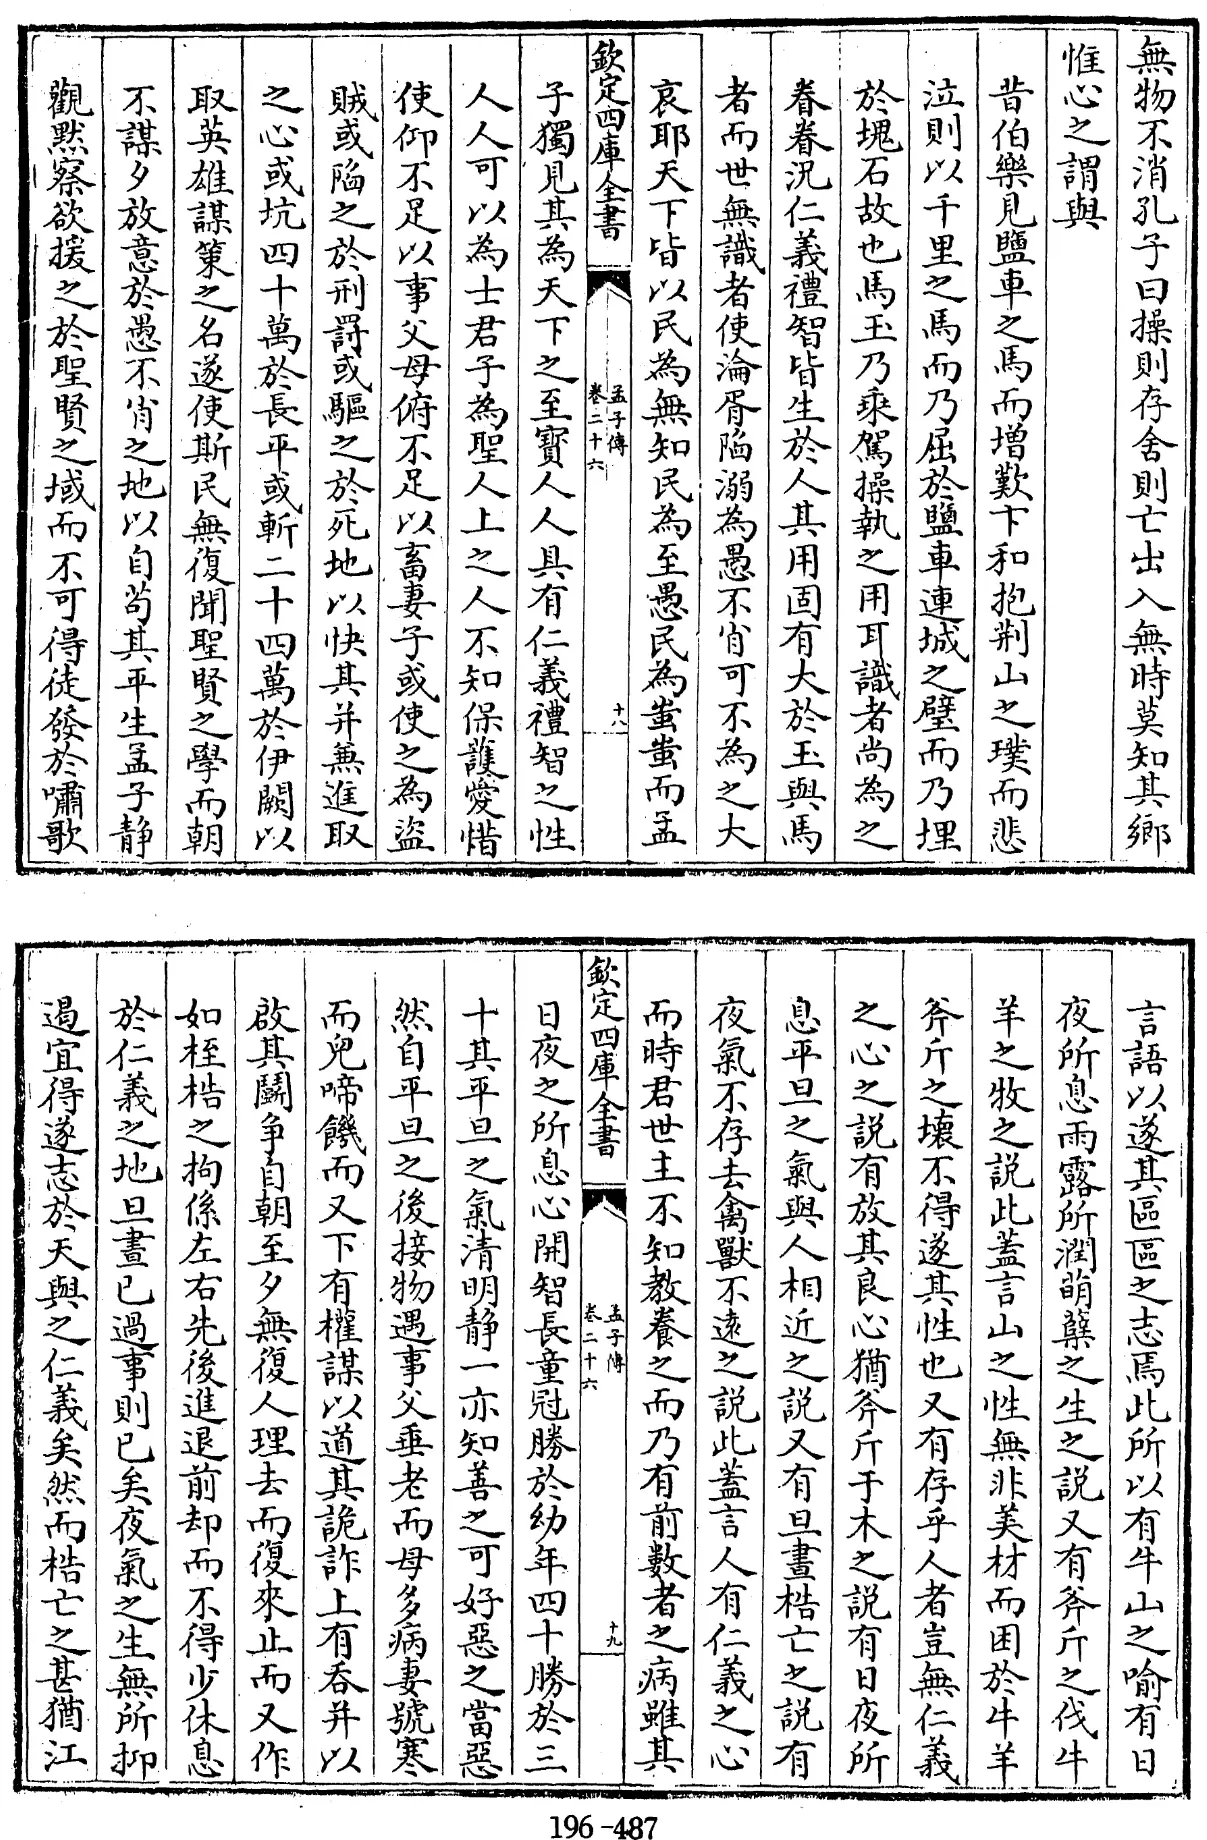 無物不消孔子曰操則存舍則亡出入無時莫知其鄉
惟心之謂與
昔伯樂見鹽車之馬而增歎卞和抱荆山之璞而悲
泣則以千里之馬而乃屈於鹽車連城之璧而乃埋
於塊石故也馬玉乃乘駕操執之用耳識者尚為之
眷眷況仁義禮智皆生於人其用固有大於玉與馬
者而世無識者使淪胥陥溺為愚不肖可不為之大
哀耶天下皆以民為無知民為至愚民為蚩蚩而孟
欽定四庫全書
孟子傳
卷二十六
十八
子獨見其為天下之至寳人人具有仁義禮智之性
人人可以為士君子為聖人上之人不知保護愛惜
使仰不足以事父母俯不足以畜妻子或使之為盜
賊或陥之於刑罰或驅之於死地以快其并兼進取
之心或坑四十萬於長平或斬二十四萬於伊闕以
取英雄謀策之名遂使斯民無復聞聖賢之學而朝
不謀夕放意於愚不肖之地以自苟其平生孟子静
觀黙察欲援之於聖賢之域而不可得徒發於嘯歌
言語以遂其區區之志焉此所以有牛山之喻有日
夜所息雨露所潤萌蘖之生之説又有斧斤之伐牛
羊之牧之説此蓋言山之性無非美材而困於牛羊
斧斤之壊不得遂其性也又有存乎人者豈無仁義
之心之説有放其良心猶斧斤于木之説有日夜所
息平旦之氣與人相近之説又有旦晝梏亡之説有
夜氣不存去禽獸不逺之説此蓋言人有仁義之心
而時君世主不知教養之而乃有前數者之病雖其
欽定四庫全書
孟子傳
卷二十六
十九
日夜之所息心開智長童冠勝於幼年四十勝於三
十其平旦之氣清明静一亦知善之可好惡之當惡
然自平旦之後接物遇事父垂老而母多病妻號寒
而兒啼饑而又下有權謀以道其詭詐上有吞并以
啟其鬭爭自朝至夕無復人理去而復來止而又作
如桎梏之拘係左右先後進退前却而不得少休息
於仁義之地旦晝已過事則已矣夜氣之生無所抑
遏宜得遂志於天與之仁義矣然而梏亡之甚猶江
196-487